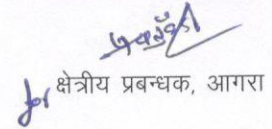 for क्षेत्रीय प्रबन्धक, आगरा